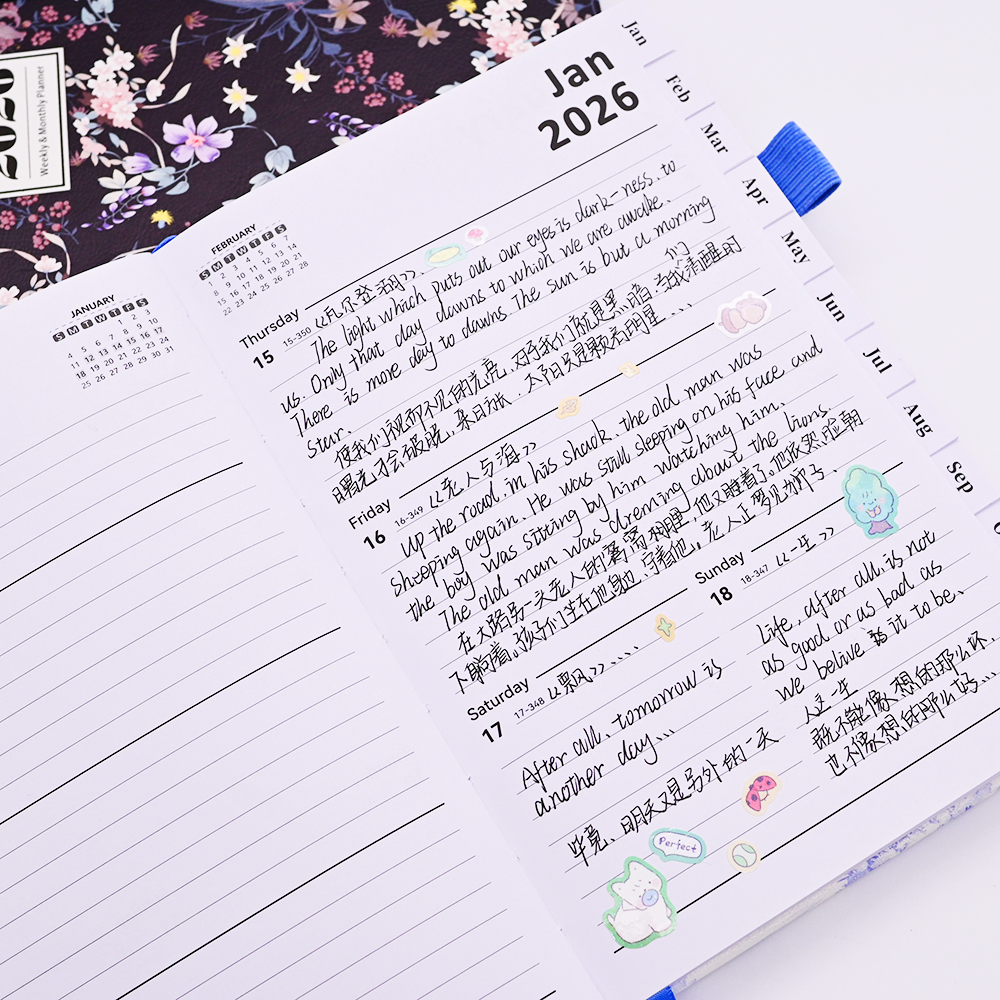 2026
Weekly & Monthly Planner
JANUARY
S M T W T F S
1 2 3
4 5 6 7 8 9 10
11 12 13 14 15 16 17
18 19 20 21 22 23 24
25 26 27 28 29 30 31
FEBRUARY
S M T W T F S
1 2 3 4 5 6 7
8 9 10 11 12 13 14
15 16 17 18 19 20 21
22 23 24 25 26 27 28
Jan
2026
Thursday
15
15-350 《瓦尔登湖》.
The light which puts out our eyes is dark-ness. to
us. Only that day dawns to which we are awake.
There is more day to dawn. The sun is but a morning
star.
使我们视而不见的光亮,对于我们就是黑暗.当我们清醒时
曙光才会破晓.来日方长,太阳只是颗启明星...
Friday
16
16-349 《老人与海》
up the road, in his shack, the old man was
sleeping again. He was still sleeping on his face and
the boy was sitting by him watching him.
The old man was dreming about the lions.
在大路另一头老人的窝棚里,他又睡着了。他依然脸朝
下躺着。孩子们坐在他身边,守着他,老人正梦见狮子.
Saturday
17
17-348 《飘》....
After all, tomorrow is
another day...
毕竟、明天又是另外的一天
Sunday
18
18-347 《一生》
Life, after all, is not
as good or as bad as
we belive is it to be.
人这一生
既不能像想的那么坏,
也不像想的那么好...
Perfect
Jan
Feb
Mar
Apr
May
Jun
Jul
Aug
Sep